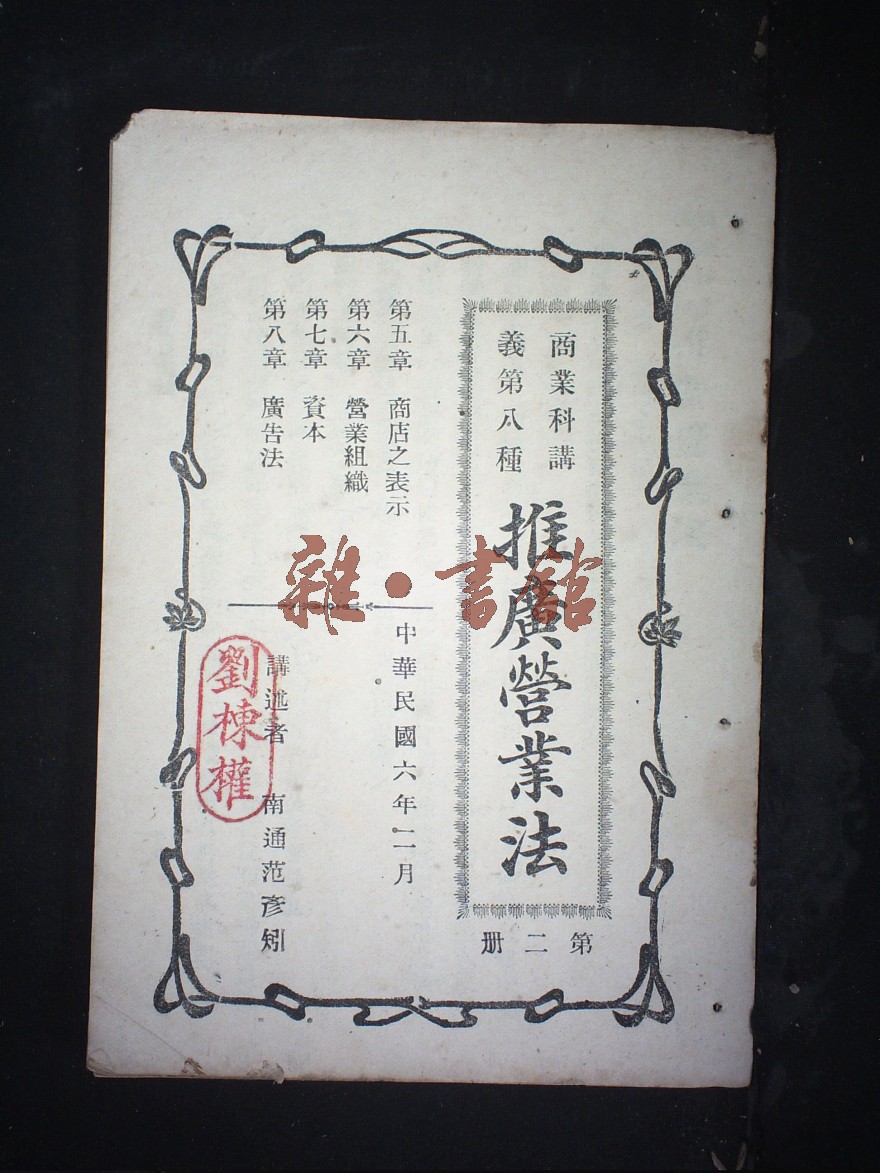 商業科講
義第八種
推廣營業法
第二册
第五章 商店之表示
第六章 營業組織
第七章 資本
第八章 廣告法
中華民國六年二月
講述者 南通范彥矧
劉棟權
雜·書館